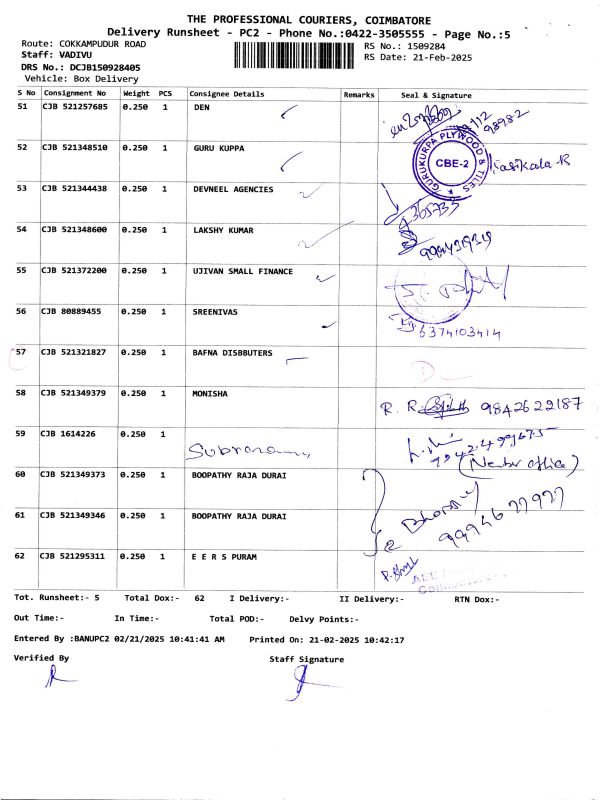 THE PROFESSIONAL COURIERS, COIMBATORE
Delivery Runsheet - PC2 - Phone No.:0422-3505555 - Page No.:5
Route: COKKAMPUDUR ROAD
RS No.: 1509284
Staff: VADIVU
RS Date: 21-Feb-2025
DRS No.: DCJB150928405
Vehicle: Box Delivery
S No Consignment No Weight PCS Consignee Details Remarks Seal & Signature
51 CJB 521257685 0.250 1 DEN
98982
52 CJB 521348510 0.250 1 GURU KUPPA
GURUKURPA PLYWOOD & TILES
CBE-2
Sasikala-R
53 CJB 521344438 0.250 1 DEVNEEL AGENCIES
54 CJB 521348600 0.250 1 LAKSHY KUMAR
55 CJB 521372200 0.250 1 UJIVAN SMALL FINANCE
56 CJB 80889455 0.250 1 SREENIVAS
6374103414
57 CJB 521321827 0.250 1 BAFNA DISBBUTERS
D
58 CJB 521349379 0.250 1 MONISHA
R. R. 9842622187
59 CJB 1614226 0.250 1
(Neuber office)
60 CJB 521349373 0.250 1 BOOPATHY RAJA DURAI
61 CJB 521349346 0.250 1 BOOPATHY RAJA DURAI
99946 77977
62 CJB 521295311 0.250 1 E E R S PURAM
Tot. Runsheet:- 5 Total Dox:- 62 I Delivery:- II Delivery:- RTN Dox:-
Out Time:- In Time:- Total POD:- Delvy Points:-
Entered By :BANUPC2 02/21/2025 10:41:41 AM Printed On: 21-02-2025 10:42:17
Verified By Staff Signature